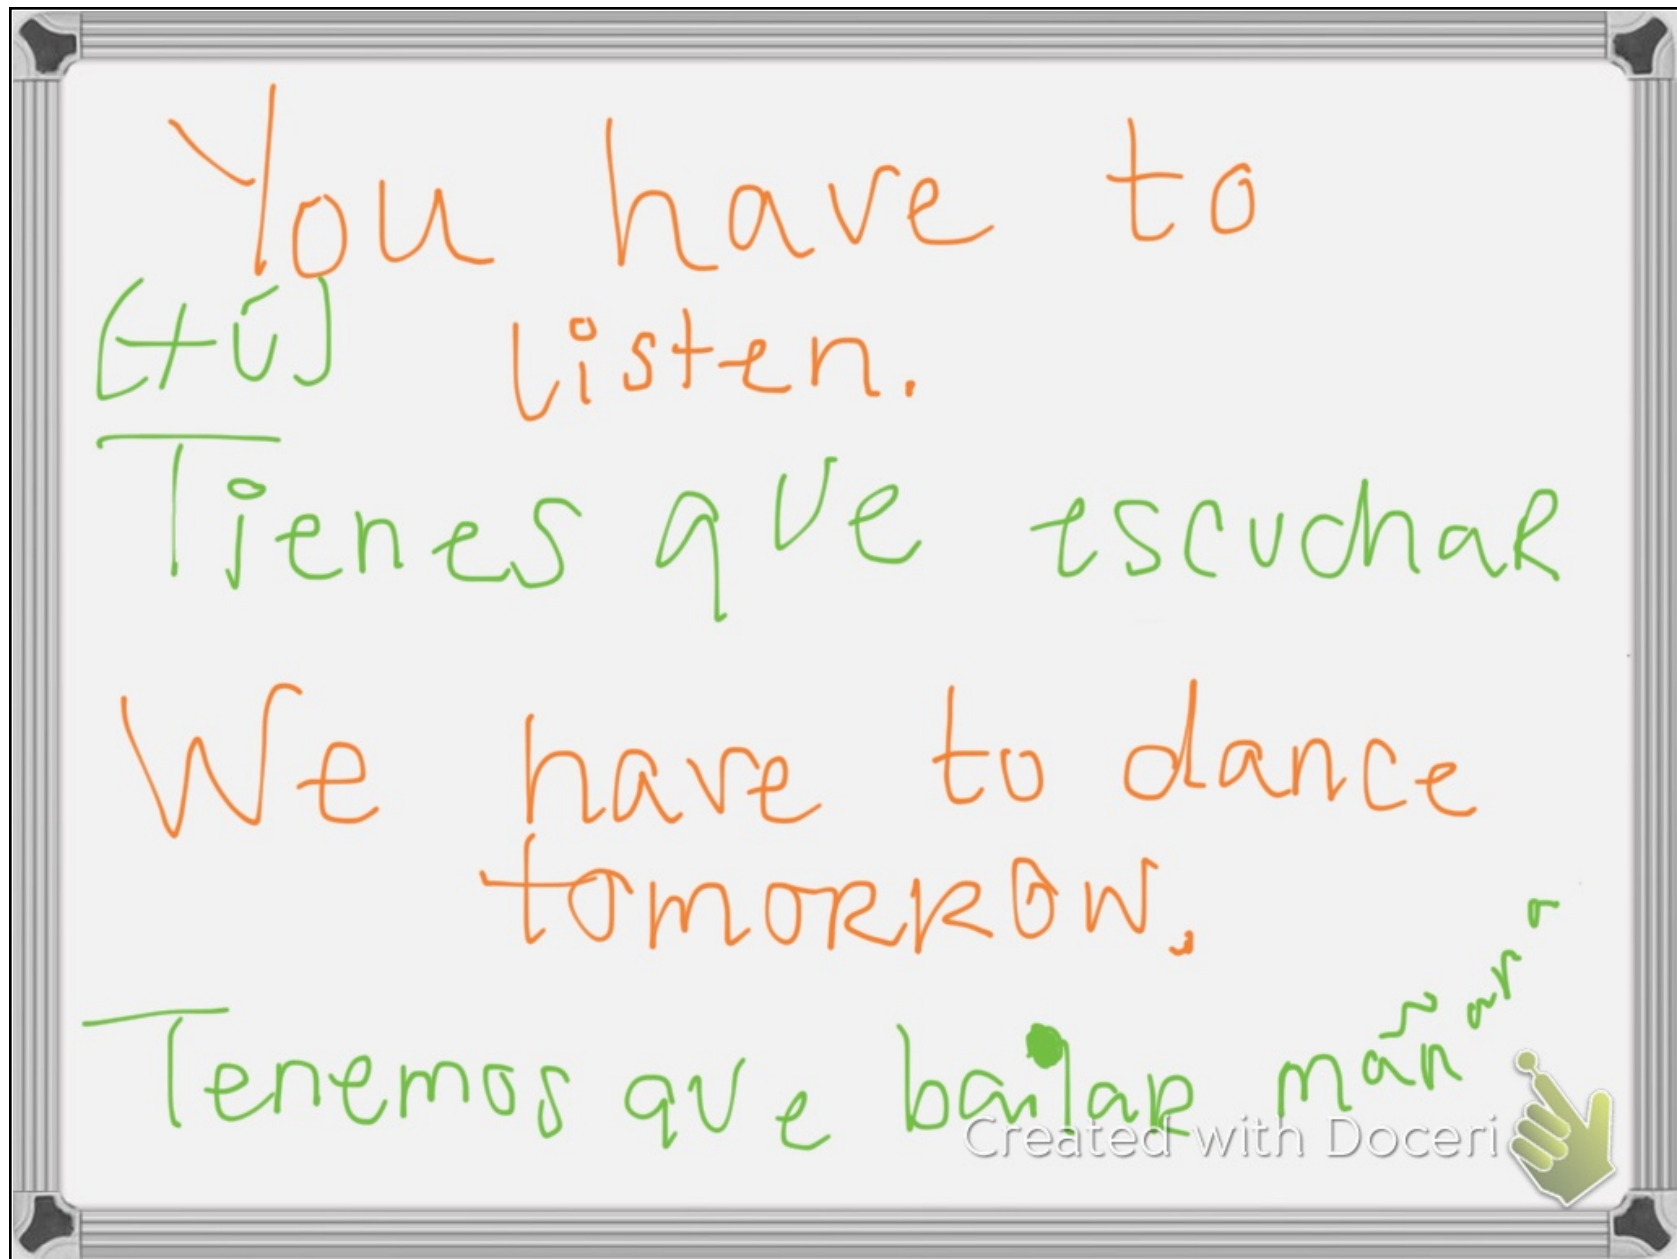 You have to
[tú]
listen.
Tienes que escuchar
We have to dance
tomorrow.
Tenemos que bailar mañana
Created with Doceri